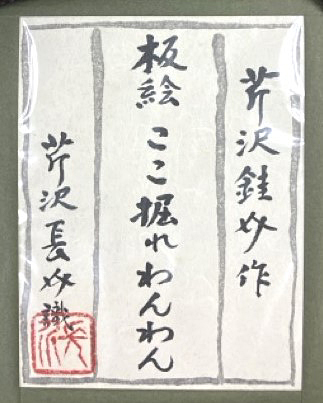 芹沢銈介作
板絵 ここ掘れわんわん
芹沢長介識